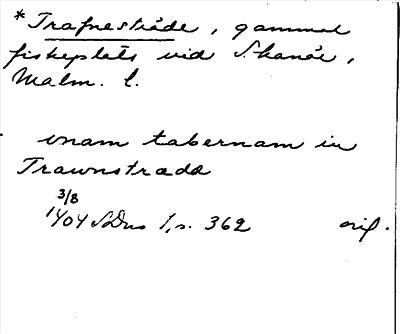 *Trafnesträde, gammal
fiskeplats vid Skanör,
Malm. l.
unam tabernam in
Trawnstrade
3/8
1404 SDns 1, s. 362 orig.